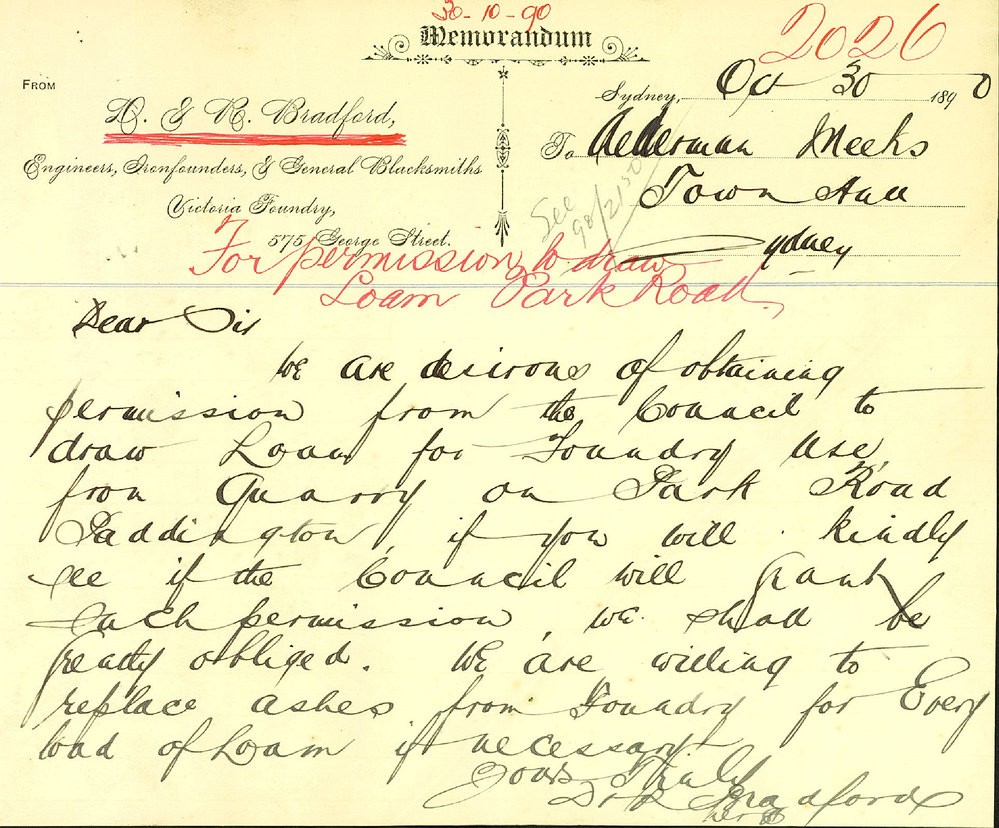 30-10-90
Memorandum
2026
FROM
D. & R. Bradford,
Engineers, Ironfounders, & General Blacksmiths
Victoria Foundry,
575, George Street.
Sydney, Oct 30 1890
To Alderman Meeks
Town Hall
Sydney
See
90/2150
For permission to draw
Loam Park Road
Dear Sir
We are desirous of obtaining
permission from the Council to
draw Loam for Foundry use,
from Quarry on Park Road
Paddington, if you will kindly
see if the Council will grant
such permission, we shall be
greatly obliged. We are willing to
replace ashes from Foundry for Every
load of Loam if necessary
Yours Truly
D & R Bradford